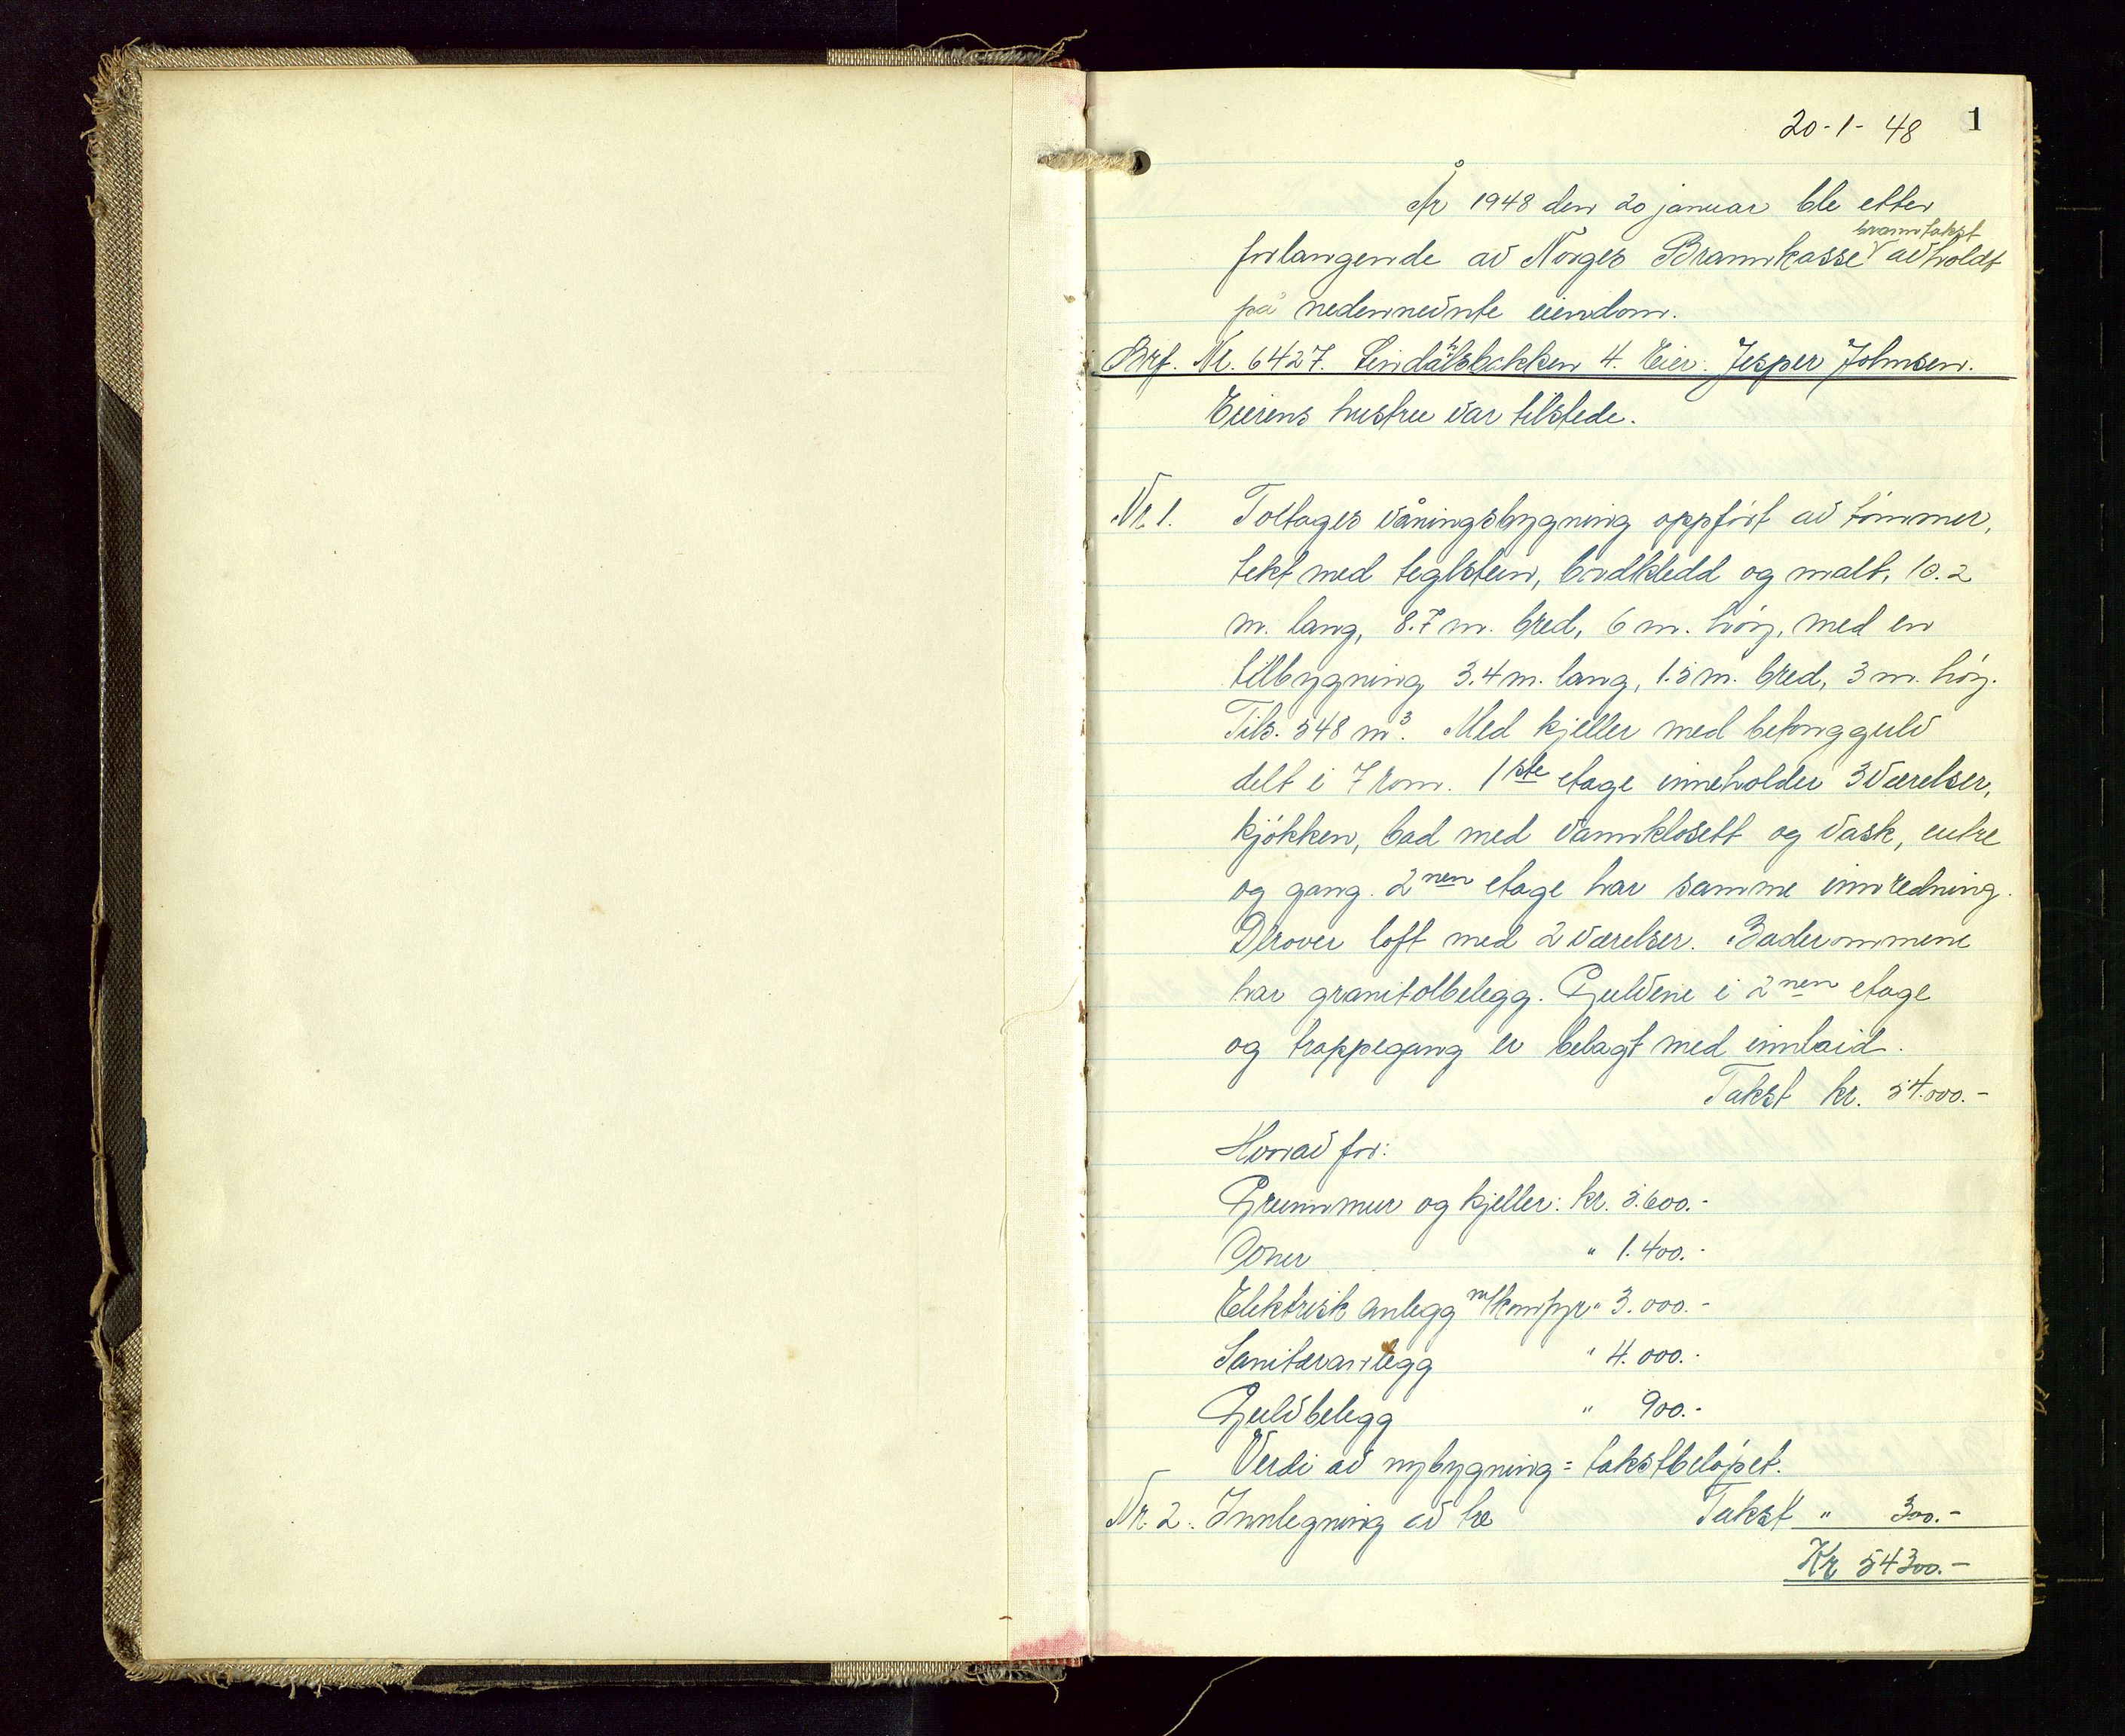 20-1-48 1
År 1948 den 20 januar ble etter
branntakst
forlangende av Norges Brannkasse √ avholdt
på nedennevnte eiendom.
Brf. Nr. 6427. Eier: Jesper Johnsen.
Eierens hustru var tilstede.
Nr. 1. Toetages våningsbygning oppført av tømmer,
tekt med teglstein, bordkledd og malt, 10.2
m. lang, 8.7 m. bred, 6 m. høy, med en
tilbygning 3.4 m. lang, 1.5 m. bred, 3 m. høy.
Tils. 548 m³. Med kjeller med betonggulv
delt i 7 rom. 1ste etage inneholder 3 værelser,
kjøkken, bad med vannklosett og vask, entre
og gang. 2nen etage har samme innredning.
Derover loft med 2 værelser. Baderommene
har granitolbelegg. Gulvene i 2nen etage
og trappegang er belagt med innlaid.
Takst kr. 54.000.-
Hvorav for:
Grunnmur og kjeller: kr. 5.600.-
Ovner " 1.400.-
Elektrisk anlegg m/komfyr " 3.000.-
Sanitæranlegg " 4.000.-
Gulvbelegg " 900.-
Verdi av nybygning = takstbeløpet.
Nr. 2. Innlegning av Takst " 300.-
Kr 54300.-